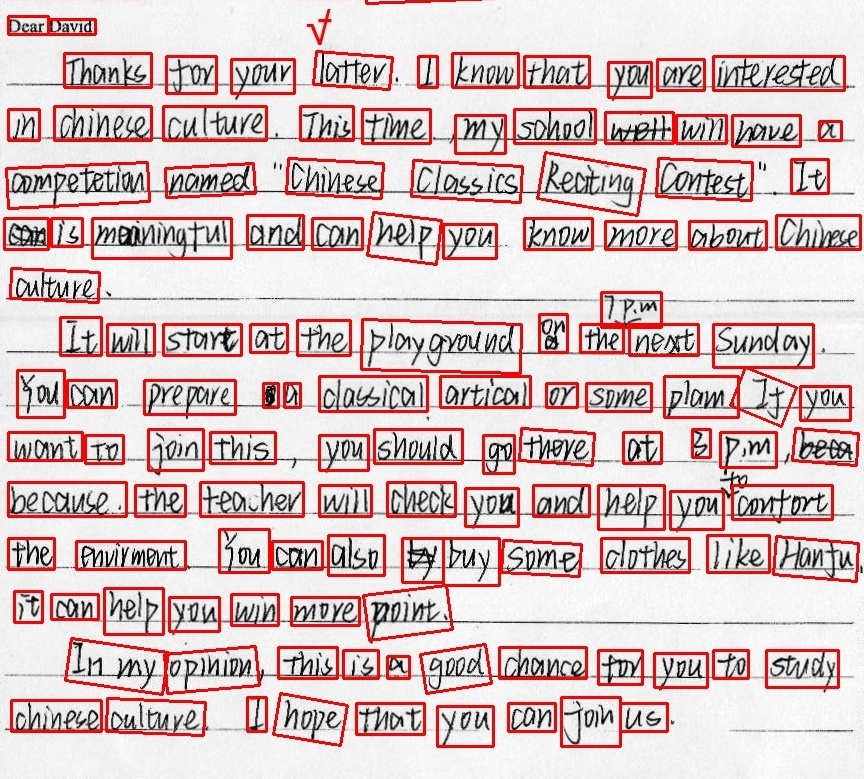 Dear David
Thanks for your latter. I know that you are interested
in chinese culture. This time, my school will have a
competetion named "Chinese Classics Reciting Contest". It
is meaningful and can help you know more about Chinese
culture.
7 p.m
It will start at the playground on the next Sunday.
You can prepare a classical artical or some plam. If you
want to join this, you should go there at 3 p.m,
because. the teacher will check you and help you to confort
the envirment. You can also buy some clothes like Hanfu.
it can help you win more point.
In my opinion, this is a good chance for you to study
chinese culture. I hope that you can join us.